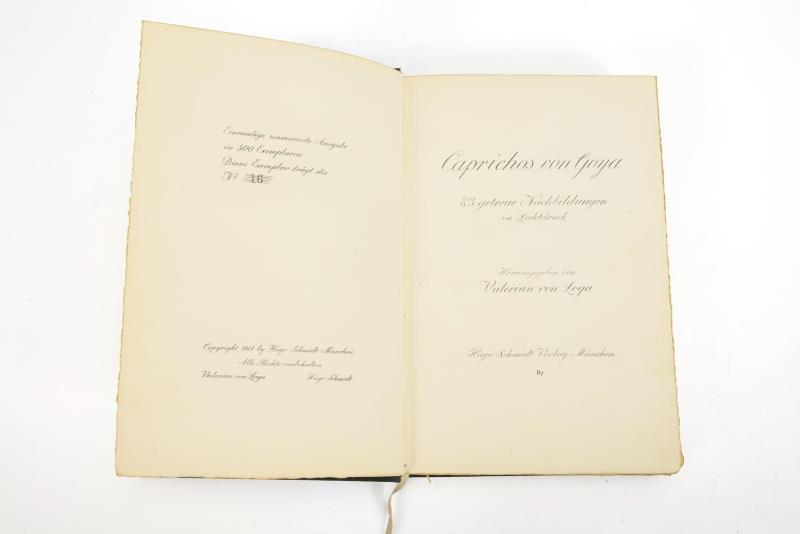 Einmalige numerierte Ausgabe
in 500 Exemplaren
Dieses Exemplar trägt die
№ 16
Copyright by Hugo Schmidt München
Alle Rechte vorbehalten
Valerian von Loga Hugo Schmidt
Caprichos von Goya
83 getreue Nachbildungen
in Lichtdruck
Herausgegeben von
Valerian von Loga
Hugo Schmidt Verlag München